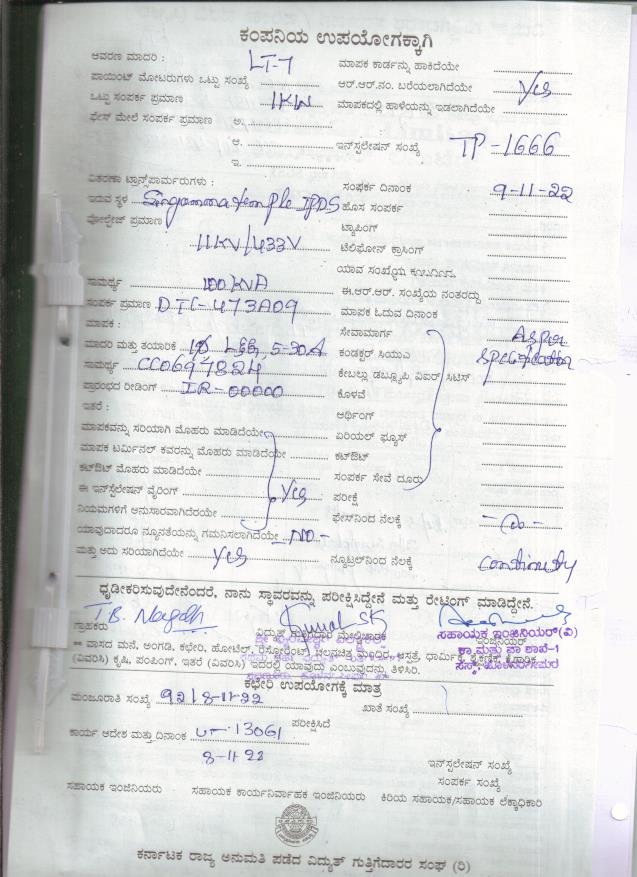 ಕಂಪನಿಯ ಉಪಯೋಗಕ್ಕಾಗಿ
ಆವರಣ ಮಾದರಿ : LT-7 ಮಾಪಕ ಕಾರ್ಡನ್ನು ಹಾಕಿದೆಯೇ
ಪಾಯಿಂಟ್ ಮೋಟರುಗಳು ಒಟ್ಟು ಸಂಖ್ಯೆ ಆರ್.ಆರ್.ನಂ. ಬರೆಯಲಾಗಿದೆಯೇ Yes
ಒಟ್ಟು ಸಂಪರ್ಕ ಪ್ರಮಾಣ 1KW ಮಾಪಕದಲ್ಲಿ ಹಾಳೆಯನ್ನು ಇಡಲಾಗಿದೆಯೇ
ಫೇಸ್ ಮೇಲೆ ಸಂಪರ್ಕ ಪ್ರಮಾಣ ಅ.
ಆ. ಇನ್‌ಸ್ಟಲೇಷನ್ ಸಂಖ್ಯೆ TP-1666
ಇ.
ವಿತರಣಾ ಟ್ರಾನ್ಸ್‌ಫಾರ್ಮರುಗಳು : ಸಂಪರ್ಕ ದಿನಾಂಕ 9-11-22
ಇರುವ ಸ್ಥಳ Singamma temple IPDS ಹೊಸ ಸಂಪರ್ಕ
ವೋಲ್ಟೇಜ್ ಪ್ರಮಾಣ ಟ್ಯಾಪಿಂಗ್
11KV/433V ಟೆಲಿಫೋನ್ ಕ್ರಾಸಿಂಗ್
ಯಾವ ಸಂಖ್ಯೆಯ
ಸಾಮರ್ಥ್ಯ 100KVA ಈ.ಆರ್.ಆರ್. ಸಂಖ್ಯೆಯ ನಂತರದ್ದು
ಸಂಪರ್ಕ ಪ್ರಮಾಣ DTC-473A09 ಮಾಪಕ ಓದುವ ದಿನಾಂಕ
ಮಾಪಕ : ಸೇವಾಮಾರ್ಗ As per
ಮಾದರಿ ಮತ್ತು ತಯಾರಿಕೆ 1Ø L&G, 5-30A ಕಂಡಕ್ಟರ್ ಸಿಯುಎ specification
ಸಾಮರ್ಥ್ಯ CC0697324 ಕೇಬಲ್ಲು ಡಬ್ಲ್ಯೂಪಿ ವಿಐರ್ ಸಿಟಿಸ್
ಪ್ರಾರಂಭದ ರೀಡಿಂಗ್ IR-00000 ಕೊಳವೆ
ಇತರೆ : ಆರ್ಥಿಂಗ್
ಮಾಪಕವನ್ನು ಸರಿಯಾಗಿ ಮೊಹರು ಮಾಡಿದೆಯೇ ಏರಿಯಲ್ ಫ್ಯೂಸ್
ಮಾಪಕ ಟರ್ಮಿನಲ್ ಕವರನ್ನು ಮೊಹರು ಮಾಡಿದೆಯೇ ಕಟ್‌ಔಟ್
ಕಟ್‌ಔಟ್ ಮೊಹರು ಮಾಡಿದೆಯೇ ಸಂಪರ್ಕ ಸೇವೆ ದೂರು
ಈ ಇನ್‌ಸ್ಟಲೇಷನ್ ವೈರಿಂಗ್ Yes ಪರೀಕ್ಷೆ
ನಿಯಮಗಳಿಗೆ ಅನುಸಾರವಾಗಿದೆರಯೇ ಫೇಸ್‌ನಿಂದ ನೆಲಕ್ಕೆ
ಯಾವುದಾದರೂ ನ್ಯೂನತೆಯನ್ನು ಗಮನಿಸಲಾಗಿದೆಯೇ NO
ಮತ್ತು ಅದು ಸರಿಯಾಗಿದೆಯೇ Yes ನ್ಯೂಟ್ರಲ್‌ನಿಂದ ನೆಲಕ್ಕೆ continuity
ಧೃಡೀಕರಿಸುವುದೇನೆಂದರೆ, ನಾನು ಸ್ಥಾವರವನ್ನು ಪರೀಕ್ಷಿಸಿದ್ದೇನೆ ಮತ್ತು ರೇಟಿಂಗ್ ಮಾಡಿದ್ದೇನೆ.
ಗ್ರಾಹಕರು ವಿದ್ಯುತ್ ಗುತ್ತಿಗೆದಾರ ಇಂಜಿನಿಯರ್
ಸಹಾಯಕ ಇಂಜಿನಿಯರ್(ವಿ)
** ವಾಸದ ಮನೆ, ಅಂಗಡಿ, ಕಛೇರಿ, ಹೋಟೆಲ್, ರೆಸೋರೆಂಟ್, ಚಲನಚಿತ್ರ ಮಂದಿರ, ಆಸ್ಪತ್ರೆ, ಧಾರ್ಮಿಕ,
(ವಿವರಿಸಿ) ಕೃಷಿ, ಪಂಪಿಂಗ್, ಇತರೆ (ವಿವರಿಸಿ) ಇದರಲ್ಲಿ ಯಾವುದು ಎಂಬುವದನ್ನು ತಿಳಿಸಿರಿ.
ಕಛೇರಿ ಉಪಯೋಗಕ್ಕೆ ಮಾತ್ರ
ಮಂಜೂರಾತಿ ಸಂಖ್ಯೆ 92/8-11-22 ಖಾತೆ ಸಂಖ್ಯೆ
ಪರೀಕ್ಷಿಸಿದೆ
ಕಾರ್ಯ ಆದೇಶ ಮತ್ತು ದಿನಾಂಕ 13061
8-11-22 ಇನ್‌ಸ್ಟಲೇಷನ್ ಸಂಖ್ಯೆ
ಸಂಪರ್ಕ ಸಂಖ್ಯೆ
ಸಹಾಯಕ ಇಂಜಿನಿಯರು ಸಹಾಯಕ ಕಾರ್ಯನಿರ್ವಾಹಕ ಇಂಜಿನಿಯರು ಕಿರಿಯ ಸಹಾಯಕ/ಸಹಾಯಕ ಲೆಕ್ಕಾಧಿಕಾರಿ
ಕರ್ನಾಟಕ ರಾಜ್ಯ ಅನುಮತಿ ಪಡೆದ ವಿದ್ಯುತ್ ಗುತ್ತಿಗೆದಾರರ ಸಂಘ (ರಿ)